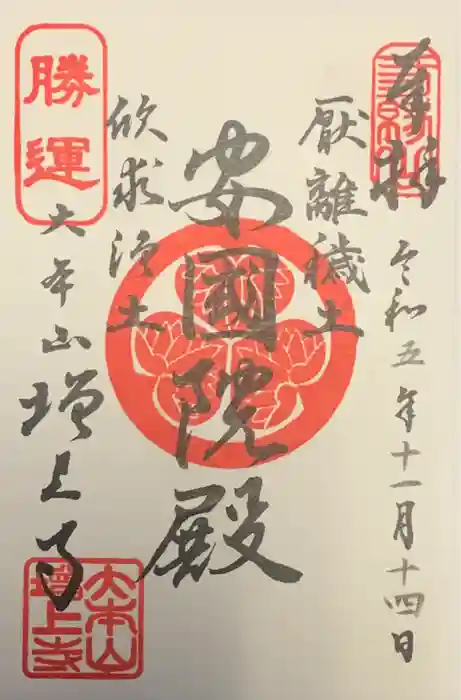 奉拝
令和五年十一月十四日
厭離穢土
安國院殿
欣求浄土
勝運
大本山
増上寺
大本山
增上寺